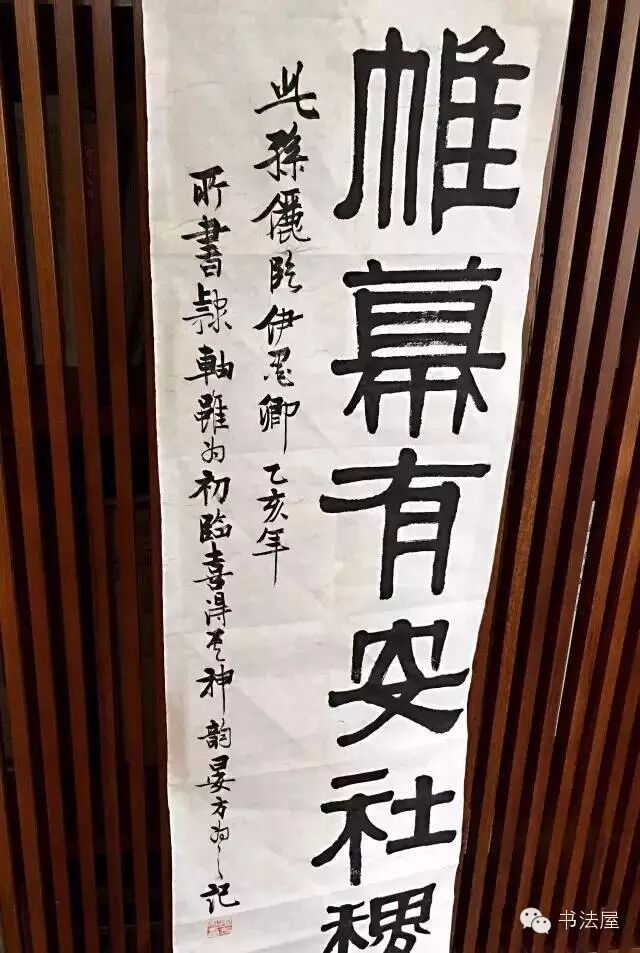 帷幕有安社稷
此孫儷臨伊墨卿乙亥年
所書隸軸雖为初臨喜得其神韵晏方为之記
书法屋